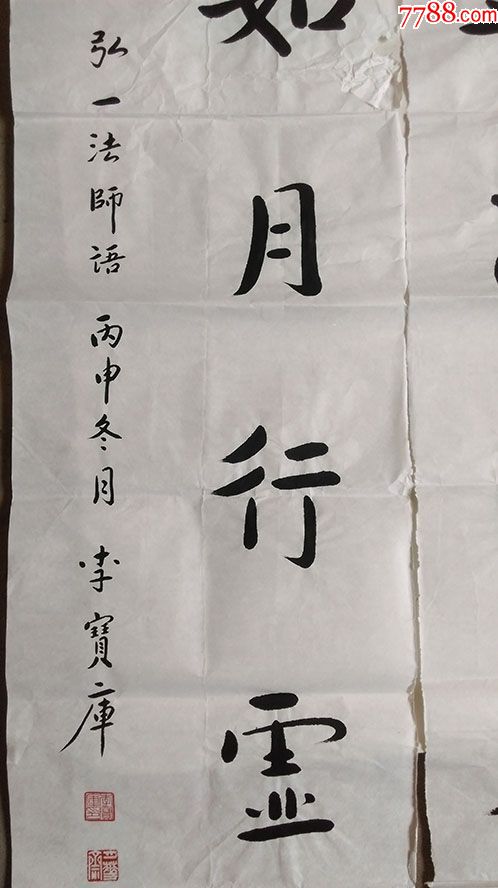 7788.com
如月行虛
弘一法師語 丙申冬月 李寶庫